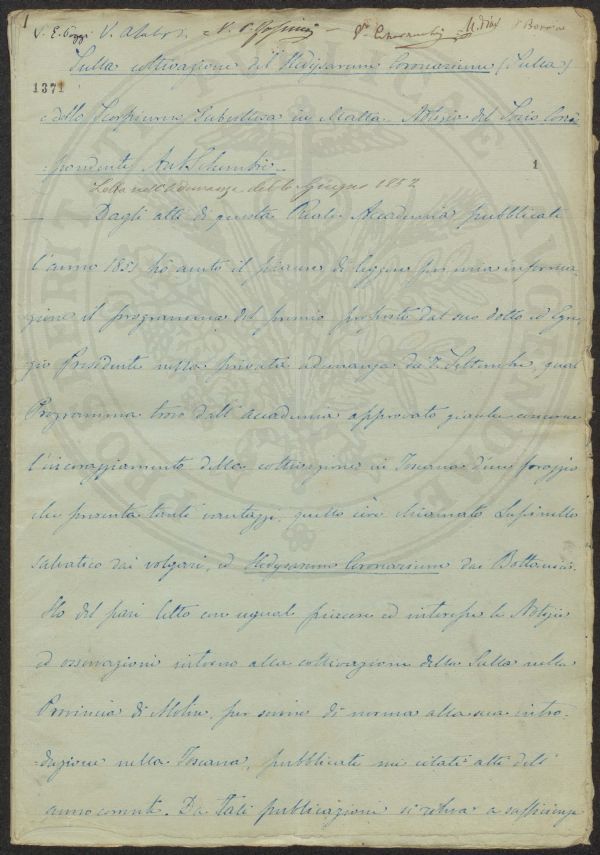 1
V. E. Poggi V. N. V. V. Borrini
Sulla coltivazione del Hedysarum Coronarium (Sulla)
1371
e dello Scorpiurus Subvillosa in Malta. Notizie del Socio Corri
=spondente Ant. Schembri
1
Letta nell'Adunanza del 6 Giugno 1852
Dagli atti di questa Reale Accademia pubblicati
l'anno 1851 hò avuto il piacere di leggere per mia informa
zione il programma del premio proposto dal suo dotto ed Egre
gio Presidente nella privata adunanza de 7. Settembre, qual
Programma trovo dall'accademia approvato giacche concerne
l'incoraggiamento della coltivazione in Toscana d'un foraggio
che presenta tanti vantaggi, quello cioè chiamato Lupinello
salvatico dai volgari, ed Hedysarum Coronarium dai Bottanici.
Hò del pari letto con ugual piacere ed interesse le Notizie
ed osservazioni intorno alla coltivazione della Sulla nella
Provincia di Molise, per servire di norma alla sua intro-
duzione nella Toscana, pubblicate nei citati atti dell'
anno corrente. Da tali pubblicazioni si rileva a sufficienza